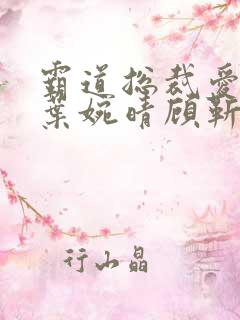 霸道总裁爱
叶婉晴顾靳
行山晶